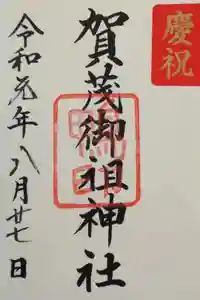 慶祝
賀茂御祖神社
令和元年八月廿七日